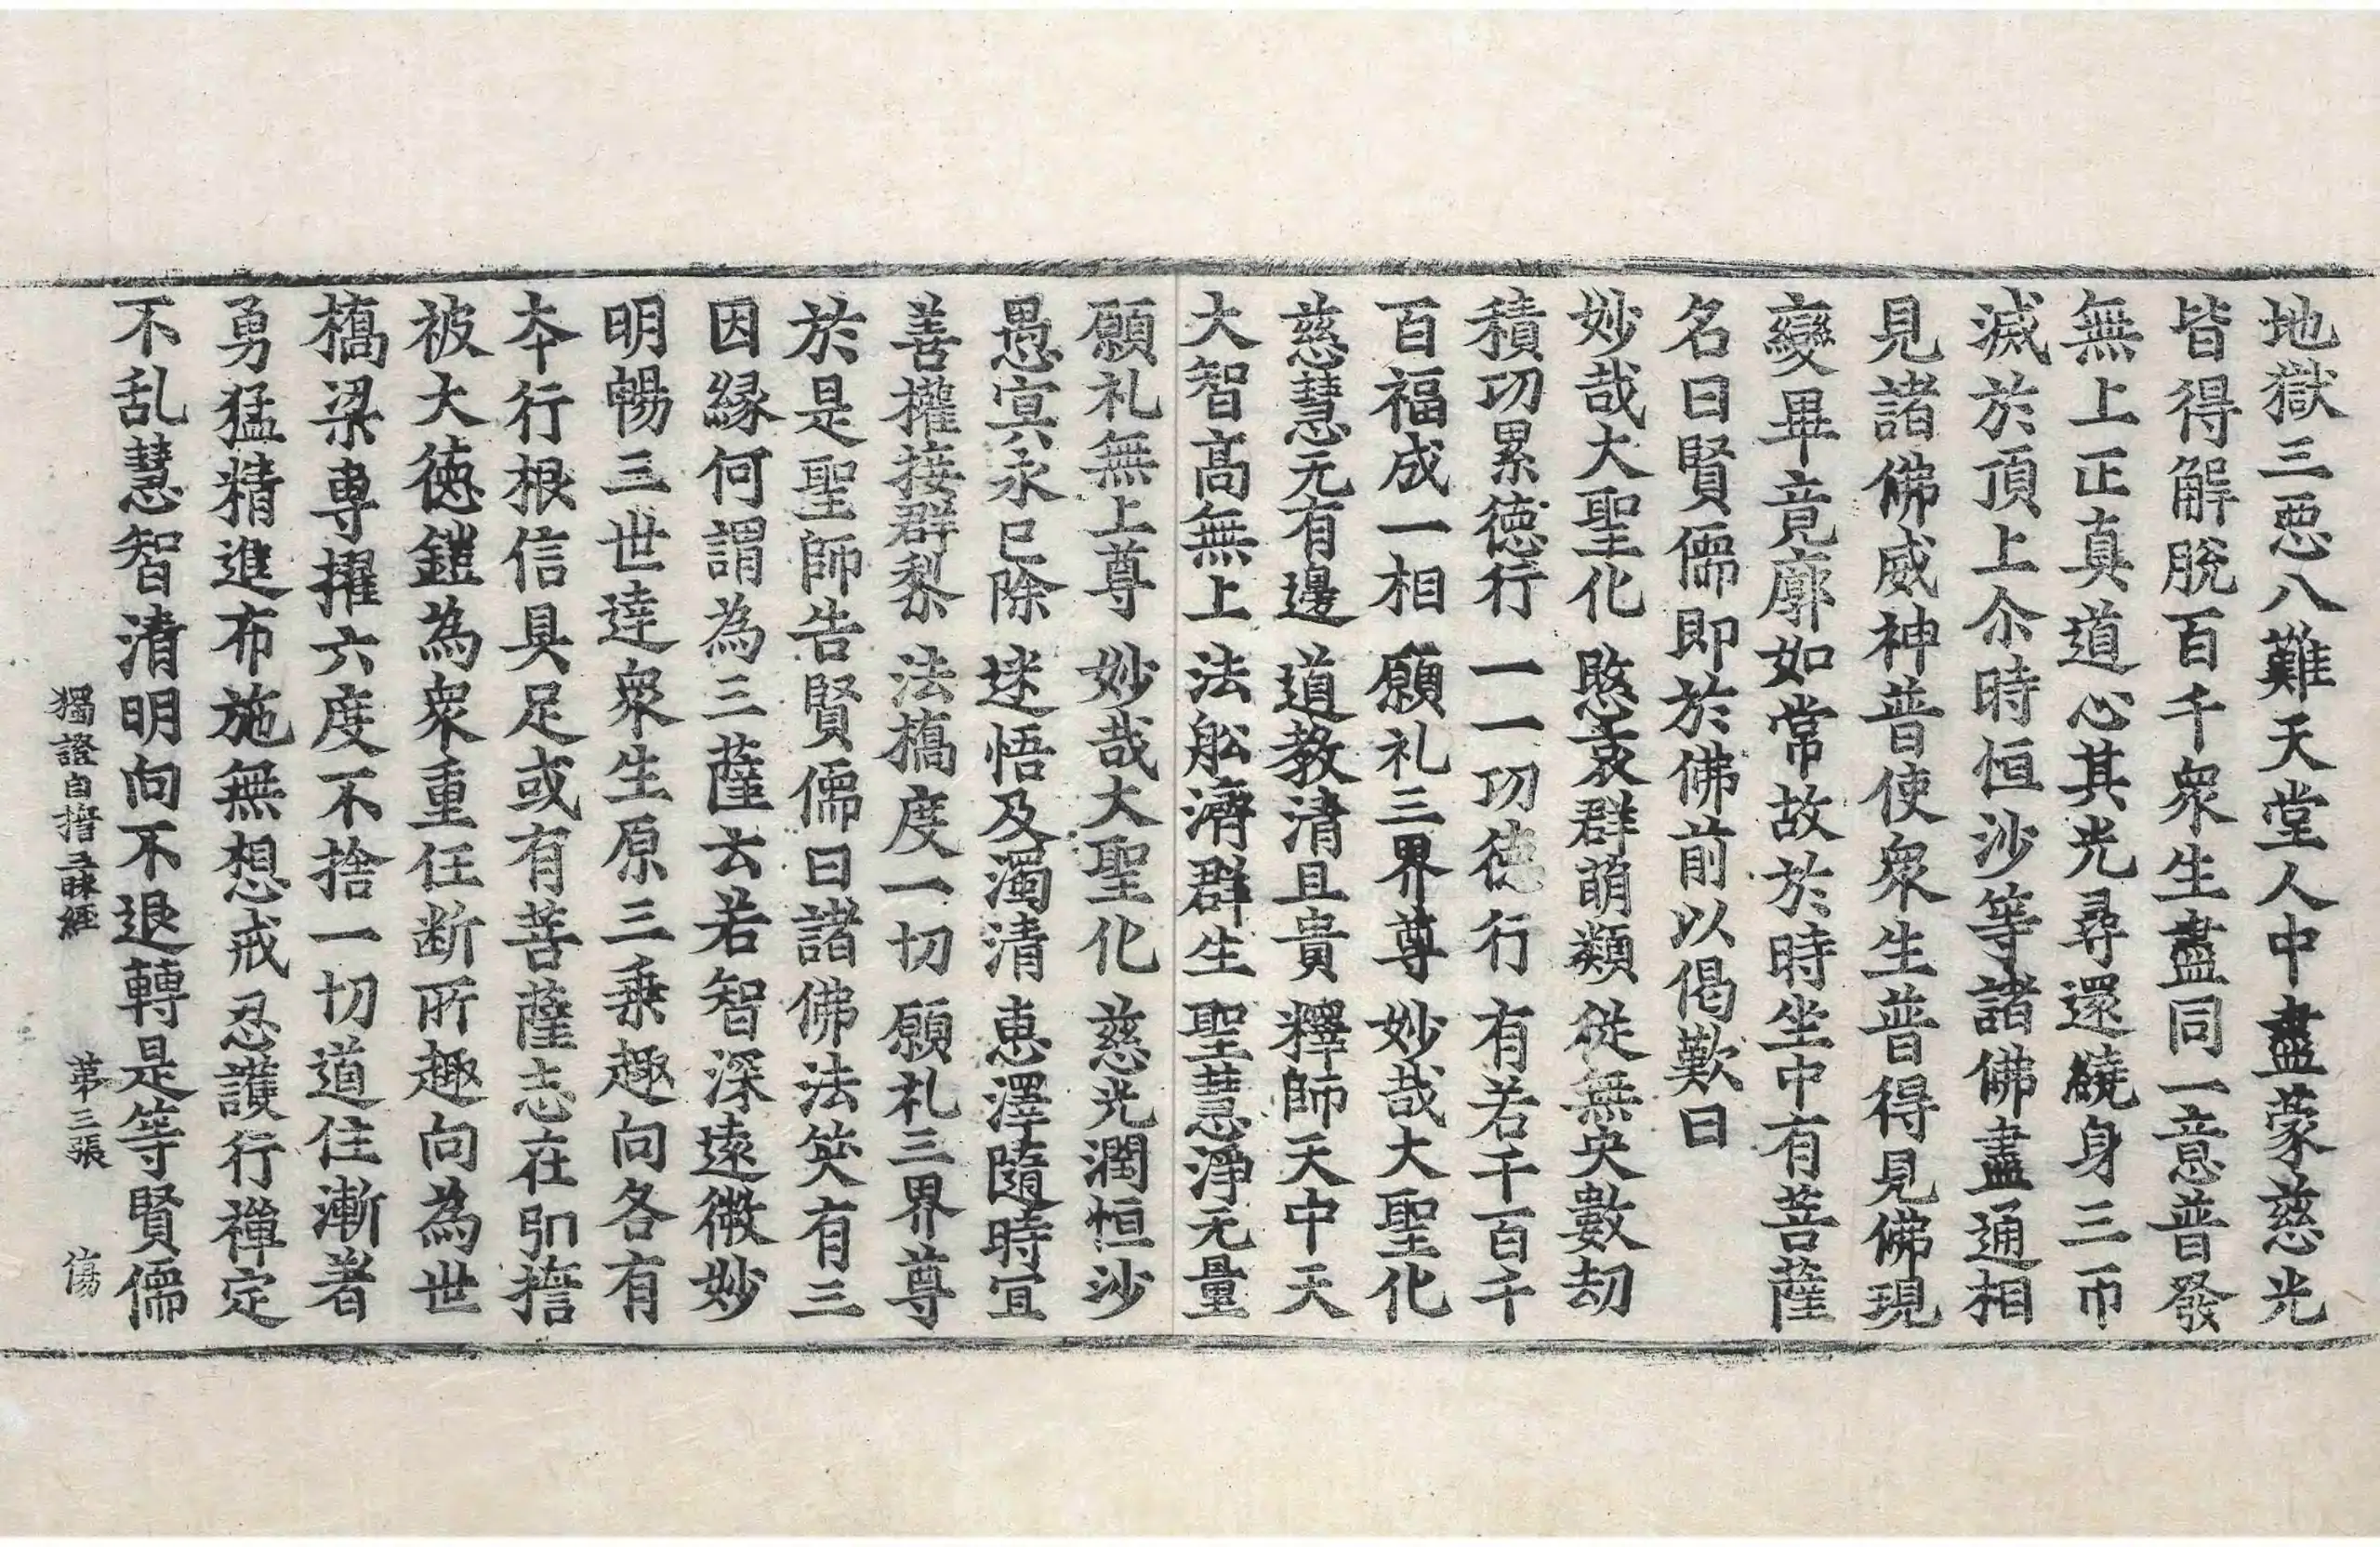 地獄三惡八難天堂人中盡蒙慈光
皆得解脫百千衆生盡同一意普發
無上正真道心其光尋還繞身三帀
滅於頂上尒時恒沙等諸佛盡通相
見諸佛威神普使衆生普得見佛現
變畢竟廓如常故於時坐中有菩薩
名曰賢儒即於佛前以偈歎曰
妙哉大聖化 愍哀群萌類 從無央數劫
積功累德行 一一功德行 有若干百千
百福成一相 願礼三界尊 妙哉大聖化
慈慧无有邊 道教清且貴 釋師天中天
大智高無上 法舩濟群生 聖慧淨无量
願礼無上尊 妙哉大聖化 慈光潤恒沙
愚冥永已除 迷悟及濁清 恵澤隨時宜
善權接群梨 法橋度一切 願礼三界尊
於是聖師告賢儒曰諸佛法笑有三
因緣何謂為三薩云若智深遠微妙
明暢三世達衆生原三乗趣向各有
本行根信具足或有菩薩志在弘擔
被大德鎧為衆重任断所趣向為世
橋梁專擢六度不捨一切道住漸者
勇猛精進布施無想戒忍護行禪定
不乱慧智清明向不退轉是等賢儒
獨證自擔三昧經 苐三張 傷